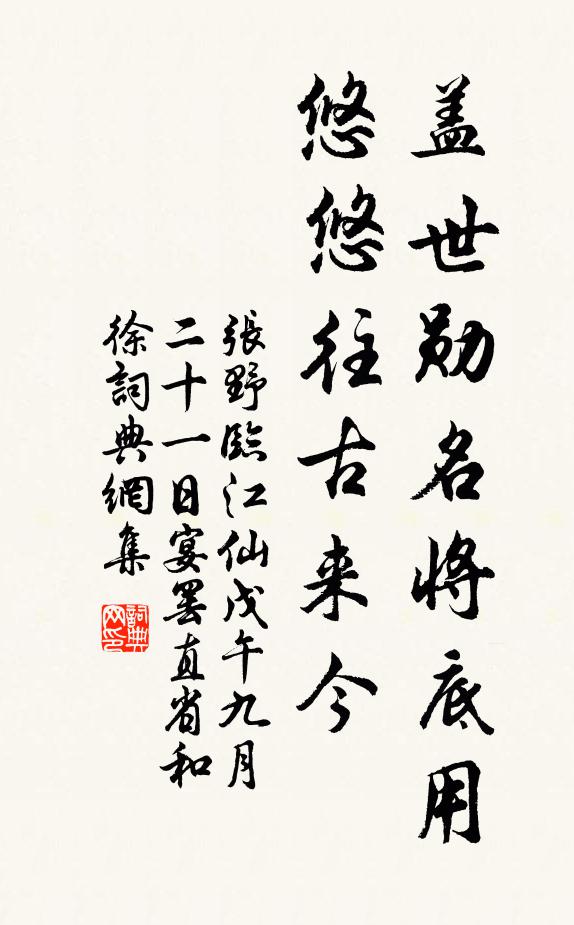 盖世勋名将底用
悠悠往古来今
張野臨江仙戊午九月
二十一日宴罢直省和
徐詞典網集
詞典网印